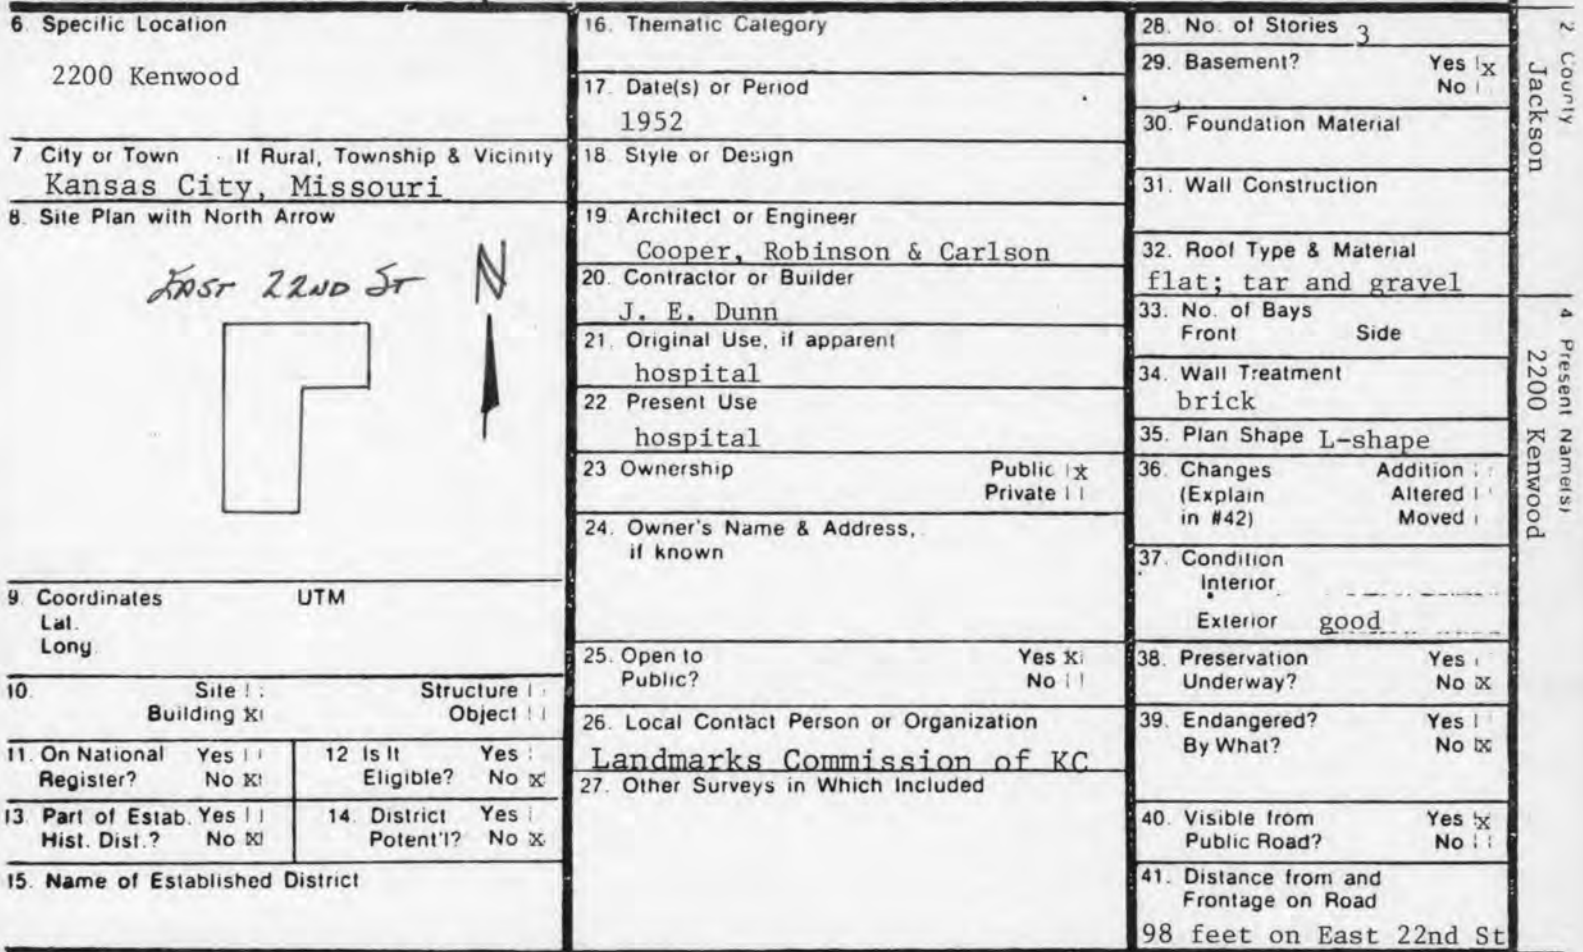 6. Specific Location
2200 Kenwood
7 City or Town If Rural, Township & Vicinity
Kansas City, Missouri
8. Site Plan with North Arrow
EAST 22ND ST
N
9. Coordinates UTM
Lat.
Long.
10. Site Structure
Building X Object
11. On National Yes
Register? No X
12 Is It Yes
Eligible? No X
13. Part of Estab. Yes
Hist. Dist.? No X
14. District Yes
Potent'l? No X
15. Name of Established District
16. Thematic Category
17. Date(s) or Period
1952
18. Style or Design
19. Architect or Engineer
Cooper, Robinson & Carlson
20. Contractor or Builder
J. E. Dunn
21. Original Use, if apparent
hospital
22 Present Use
hospital
23 Ownership Public X
Private
24. Owner's Name & Address,
if known
25. Open to Yes X
Public? No
26. Local Contact Person or Organization
Landmarks Commission of KC
27. Other Surveys in Which Included
28. No. of Stories 3
29. Basement? Yes X
No
30. Foundation Material
31. Wall Construction
32. Roof Type & Material
flat; tar and gravel
33. No. of Bays
Front Side
34. Wall Treatment
brick
35. Plan Shape L-shape
36. Changes Addition
(Explain Altered
in #42) Moved
37. Condition
Interior
Exterior good
38. Preservation Yes
Underway? No X
39. Endangered? Yes
By What? No X
40. Visible from Yes X
Public Road? No
41. Distance from and
Frontage on Road
98 feet on East 22nd St
2 County
Jackson
4 Present Name(s)
2200 Kenwood